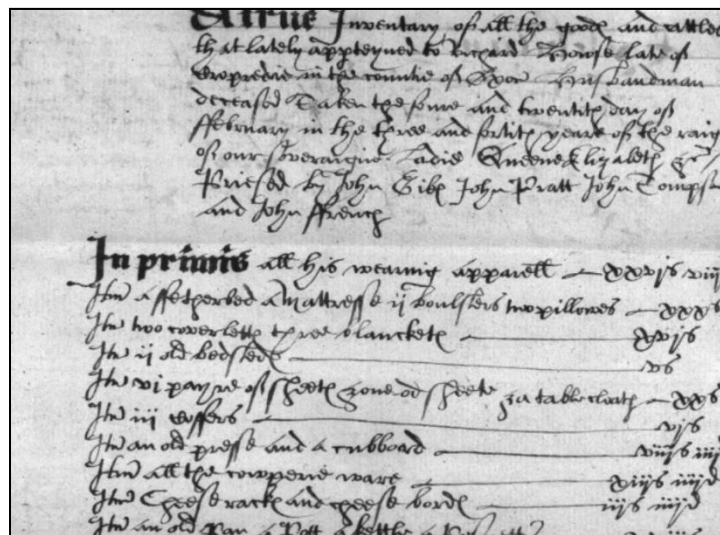 A true Inventory of all the goods and cattles
that lately apperteyned to Richard Howse late of
Cropredie in the countie of Oxon Husbandman
deceased Taken the foure and twentith day of
ffebruary in the three and fortith yeare of the raig
of our soveraigne Ladie Queene Elizabeth &c
Priesed by John Gibbs John Pratt John Tomps
and John ffrench
In primis all his wearing apparell xxvjs viij
Itm a ffetherbed a Mattresse ij boulsters two pillowes xxxs
Itm two coverletts three blancketts xvjs
Itm ij old bedsteds vs
Itm vi payre of sheets & one od sheete & a table cloath xxs
Itm iij coffers vjs
Itm an old presse and a cubboard viijs iiij
Itm all the cowperie ware xiijs iiijd
Itm Cheese rack and cheese bords iijs iiijd
Itm an old Pan a Pott a kettle a